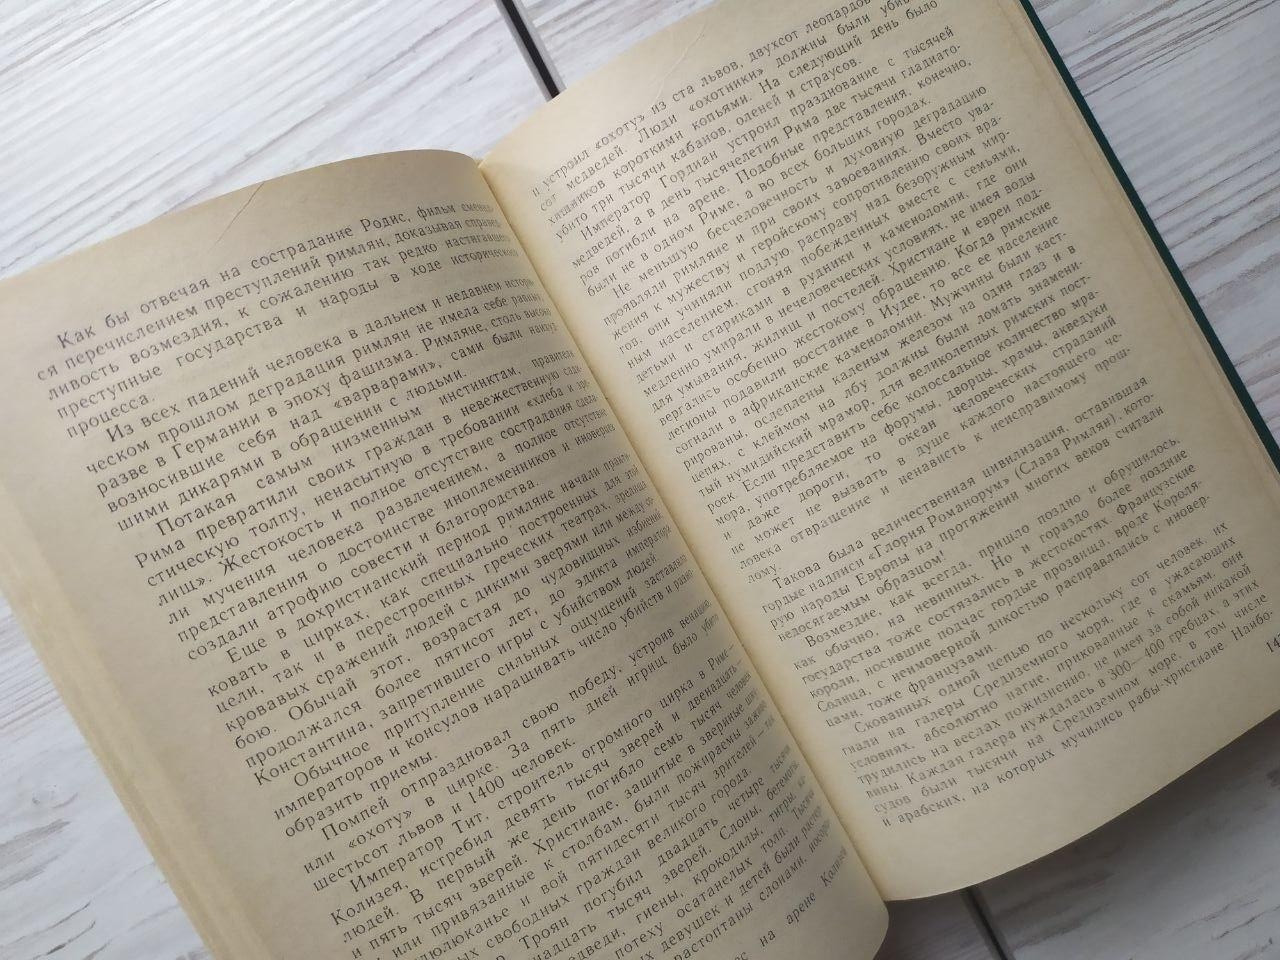 Как бы отвечая на сострадание Родис, фильм сменил-
ся перечислением преступлений римлян, доказывая справед-
ливость возмездия, к сожалению так редко настигавшего
преступные государства и народы в ходе исторического
процесса.
Из всех падений человека в дальнем и недавнем истори-
ческом прошлом деградация римлян не имела себе равных,
разве в Германии в эпоху фашизма. Римляне, столь высоко
возносившие себя над «варварами», сами были наихуд-
шими дикарями в обращении с людьми.
Потакая самым низменным инстинктам, правители
Рима превратили своих граждан в невежественную сади-
стическую толпу, ненасытную в требовании «хлеба и зре-
лищ». Жестокость и полное отсутствие сострадания сдела-
ли мучения человека развлечением, а полное отсутствие
представления о достоинстве иноплеменников и иноверцев
создали атрофию совести и благородства.
Еще в дохристианский период римляне начали практи-
ковать в цирках, как специально построенных для этой
цели, так и в перестроенных греческих театрах, зрелища
кровавых сражений людей с дикими зверями или между со-
бою. Обычай этот, возрастая до чудовищных избиений,
продолжался более пятисот лет, до эдикта императора
Константина, запретившего игры с убийством людей.
Обычное притупление сильных ощущений заставляло
императоров и консулов наращивать число убийств и разно-
образить приемы.
Помпей отпраздновал свою победу, устроив венацию
или «охоту» в цирке. За пять дней игрищ было убито
шестьсот львов и 1400 человек.
Император Тит, строитель огромного цирка в Риме —
Колизея, истребил девять тысяч зверей и двенадцать
людей. В первый же день погибло семь тысяч человек
и пять тысяч зверей. Христиане, зашитые в звериные шкуры
или привязанные к столбам, были пожираемы заживо
под улюлюканье и вой пятидесяти тысяч зрителей —
свободных граждан великого города.
Троян погубил двадцать четыре тысячи
тысяч зверей. Слоны, бегемоты,
гиены, крокодилы, тигры,
потеху осатанелых толп. Тысячи
девушек и детей были растер-
растоптаны слонами, носоро-
на арене Колизея
и устроил «охоту» из ста львов, двухсот леопардов
сот медведей. Люди «охотники» должны были убивать
хищников короткими копьями. На следующий день было
убито три тысячи кабанов, оленей и страусов.
Император Гордиан устроил празднование с тысячей
медведей, а в день тысячелетия Рима две тысячи гладиато-
ров погибли на арене. Подобные представления, конечно,
были не в одном Риме, а во всех больших городах.
Не меньшую бесчеловечность и духовную деградацию
проявляли римляне и при своих завоеваниях. Вместо ува-
жения к мужеству и геройскому сопротивлению своих вра-
гов, они учиняли подлую расправу над безоружным мир-
ным населением, сгоняя побежденных вместе с семьями,
детьми и стариками в рудники и каменоломни, где они
медленно умирали в нечеловеческих условиях, не имея воды
для умывания, жилищ и постелей. Христиане и евреи под-
вергались особенно жестокому обращению. Когда римские
легионы подавили восстание в Иудее, то все ее население
согнали в африканские каменоломни. Мужчины были каст-
рированы, ослеплены каленым железом на один глаз и в
цепях, с клеймом на лбу должны были ломать знамени-
тый нумидийский мрамор, для великолепных римских пост-
роек. Если представить себе колоссальное количество мра-
мора, употребляемое на форумы, дворцы, храмы, акведуки
и даже дороги, то океан человеческих страданий
не может не вызвать в душе каждого настоящего че-
ловека отвращение и ненависть к неисправимому прош-
лому.
Такова была величественная цивилизация, оставившая
гордые надписи «Глориа Романорум» (Слава Римлян), кото-
рую народы Европы на протяжении многих веков считали
недосягаемым образцом!
Возмездие, как всегда, пришло поздно и обрушилось,
как обычно, на невинных. Но и гораздо более поздние
государства тоже состязались в жестокостях. Французские
короли, носившие подчас гордые прозвища, вроде Короля-
Солнца, с неимоверной дикостью расправлялись с иновер-
цами, тоже французами.
Скованных одной цепью по нескольку сот человек, их
гнали на галеры Средиземного моря, где в ужасающих
условиях, абсолютно нагие, прикованные к скамьям, они
трудились на веслах пожизненно, не имея за собой никакой
вины. Каждая галера нуждалась в 300—400 гребцах, а этих
судов были тысячи на Средиземном море, в том числе
и арабских, на которых мучились рабы-христиане. Наибо-